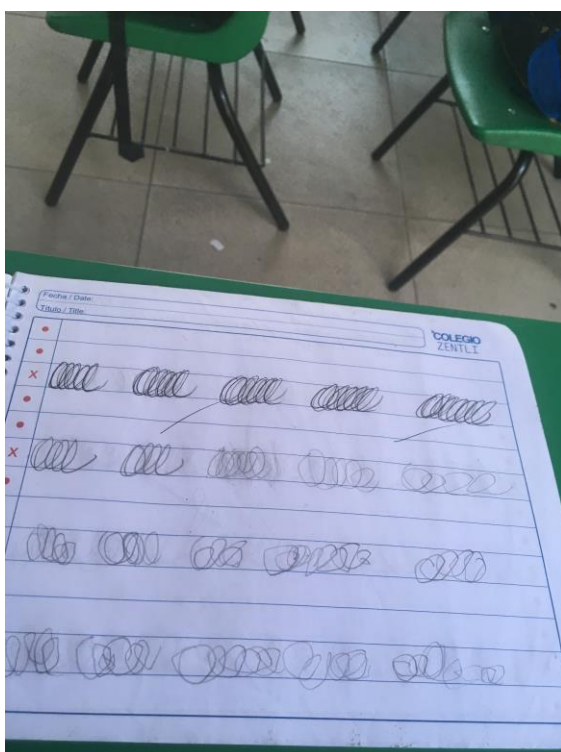 Fecha / Date:
Título / Title:
COLEGIO
ZENTLI